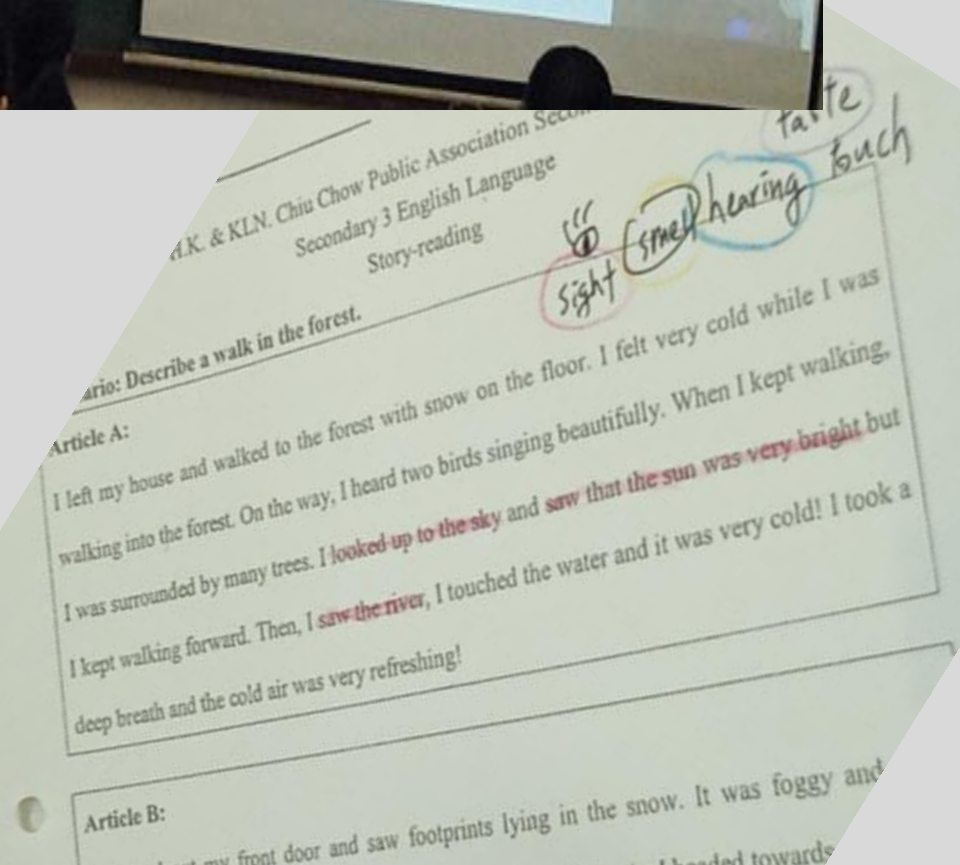 taste
touch
hearing
smell
sight
H.K. & KLN. Chiu Chow Public Association
Secondary 3 English Language
Story-reading
Describe a walk in the forest.
Article A:
I left my house and walked to the forest with snow on the floor. I felt very cold while I was
walking into the forest. On the way, I heard two birds singing beautifully. When I kept walking,
I was surrounded by many trees. I looked up to the sky and saw that the sun was very bright but
I kept walking forward. Then, I saw the river, I touched the water and it was very cold! I took a
deep breath and the cold air was very refreshing!
Article B:
my front door and saw footprints lying in the snow. It was foggy and
headed towards